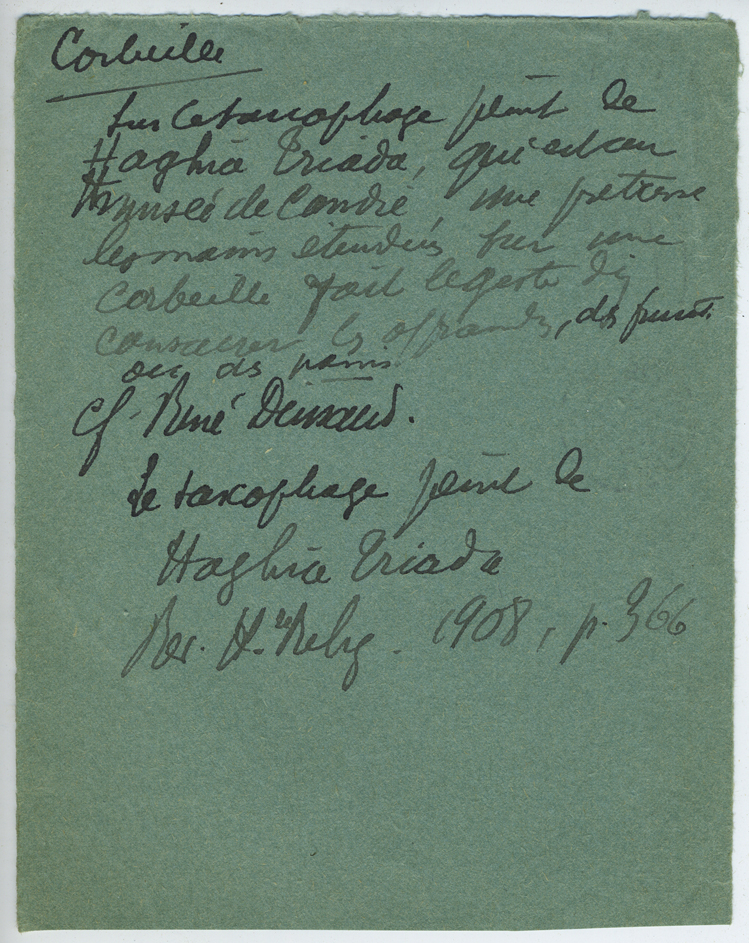 Corbeille
Sur le sarcophage peint de
Haghia Triada, qui est au
musée de Candie, une prêtresse
les mains étendues sur une
corbeille fait le geste de
consacrer les offrandes, des fruits
ou des pains
cf. René Dussaud.
Le sarcophage peint de
Haghia Triada
Rev. H.re Relig. 1908, p. 366